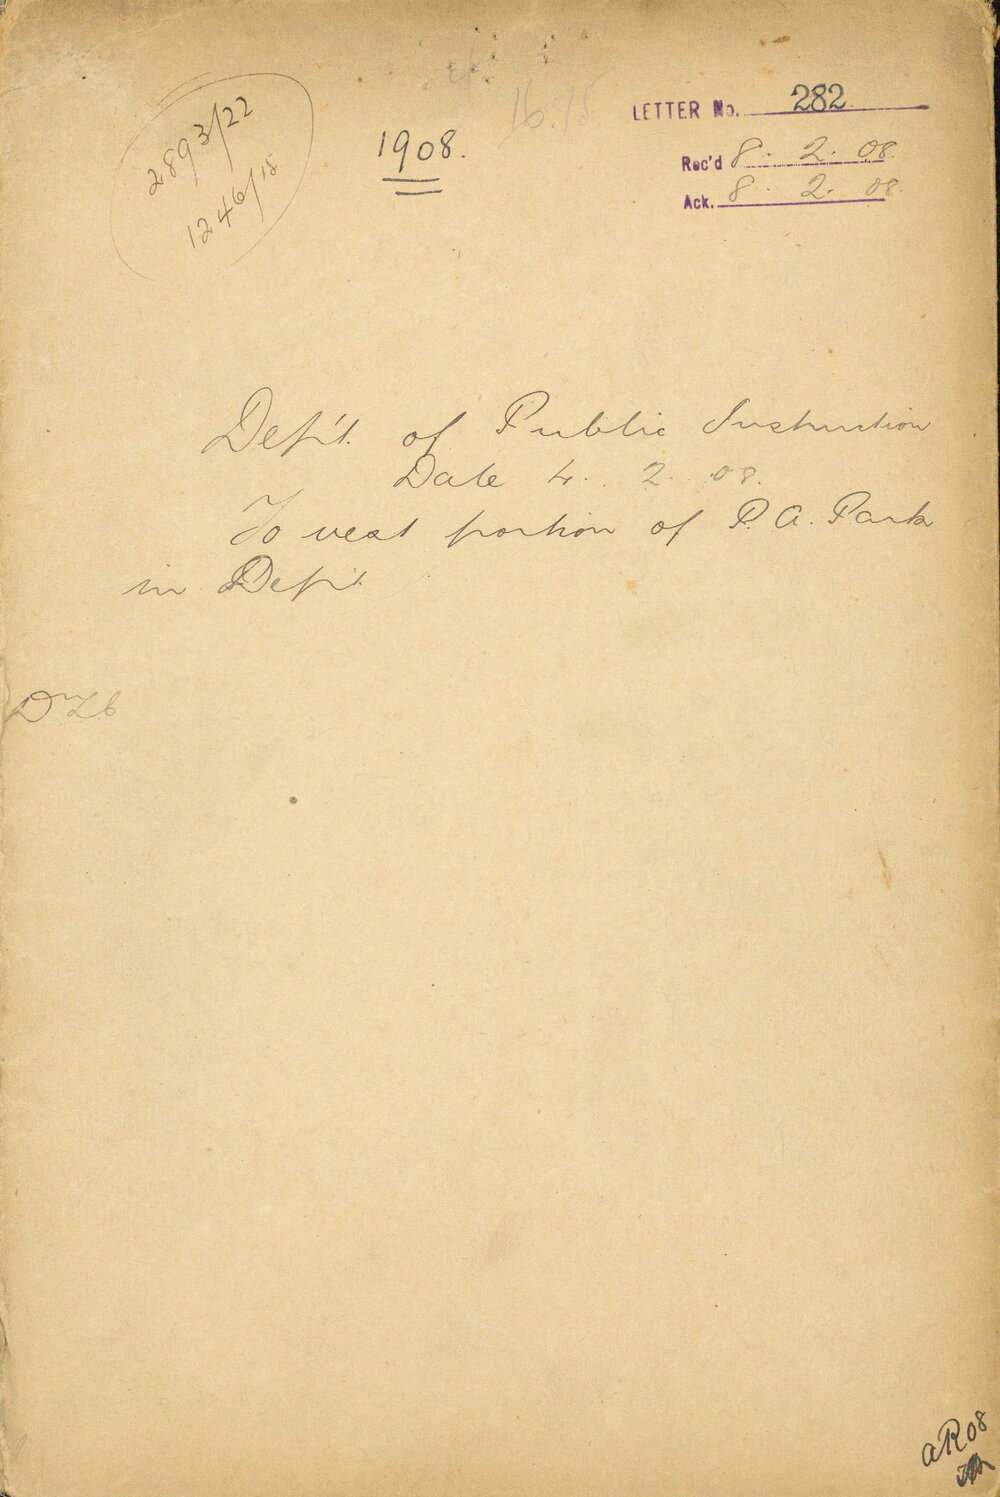 2893/22
1246/18
1908.
16.15
LETTER No. 282
Rec'd 8. 2. 08.
Ack. 8. 2. 08.
Dep't. of Public Instruction
Date 4. 2. 08.
To vest portion of P. A. Park
in Dep't
aR08